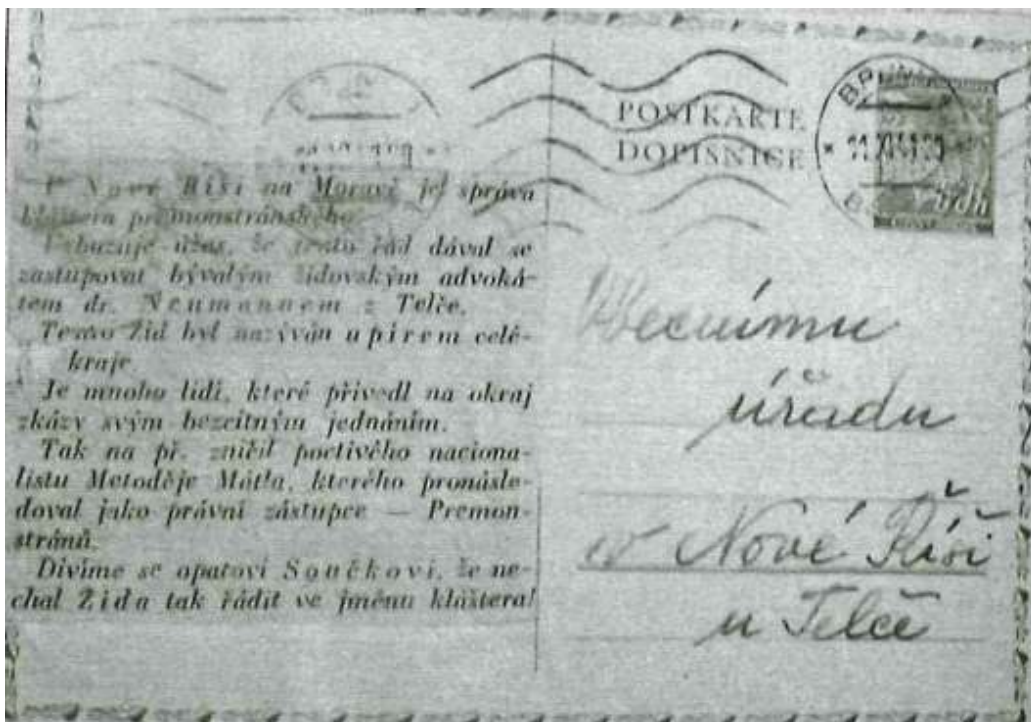 V Nové Říši na Moravě je správa
kláštera premonstránského.
Vzbuzuje úžas, že tento řád dával se
zastupovat bývalým židovským advoká-
tem dr. Neumannem z Telče.
Tento Žid byl nazýván upírem celé-
kraje.
Je mnoho lidí, které přivedl na okraj
zkázy svým bezcitným jednáním.
Tak na př. zničil poctivého naciona-
listu Metoděje Máťla, kterého pronásle-
doval jako právní zástupce — Premon-
stránů.
Divíme se opatovi Součkovi, že ne-
chal Žida tak řádit ve jménu kláštera!
POSTKARTE
DOPISNICE
Obecnímu
úřadu
v Nové Říši
u Telče